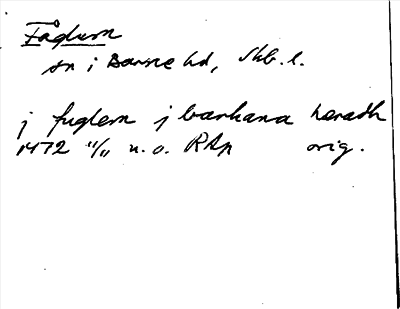 Fåglum
sn i Barne hd, Skb. l.
j fuglem j barkana heradh
1472 11/11 u. o. RAp orig.